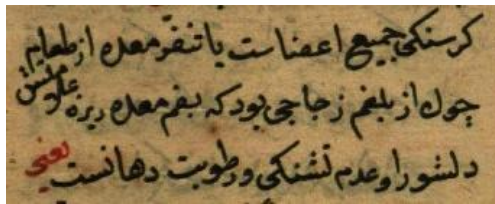 کرسنکی جمیع اعضاست با تنفر معده از طعام
چون از بلغم زجاجی بود که بفم معده ریزد علامتش
دلشورا و عدم تشنکی و رطوبت دهانست یعنی